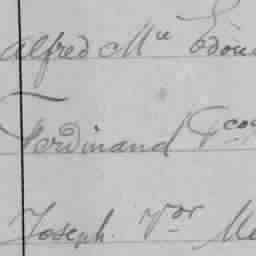 Alfred Mie Édou
Ferdinand Geo
Joseph. Vor Me